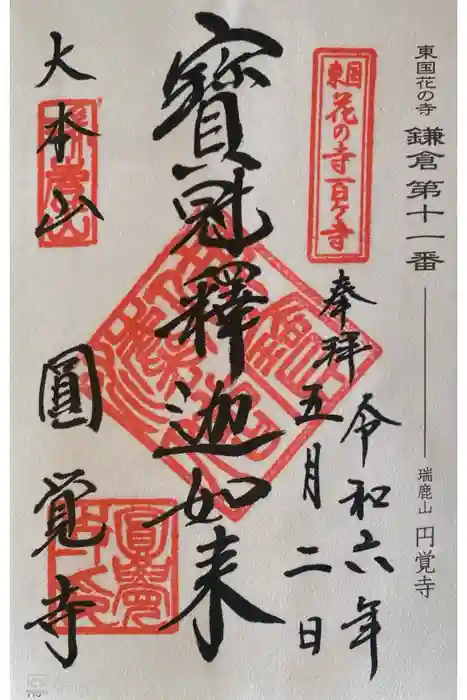 東国花の寺 鎌倉 第十一番 瑞鹿山 円覚寺
東国
花の寺百ヶ寺
奉拝
令和六年
五月二日
寶冠釋迦如来
大本山
圓覚寺